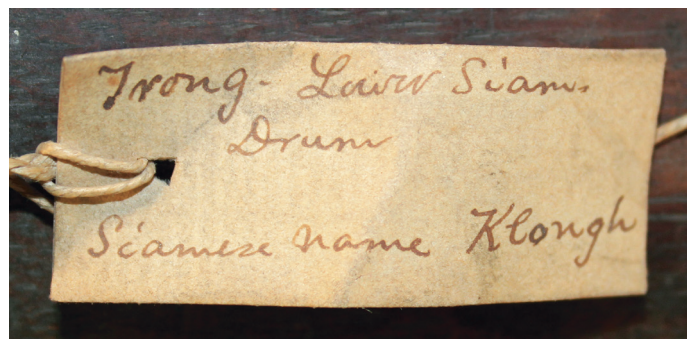 Trong - Lower Siam.
Drum
Siamese name Klongh